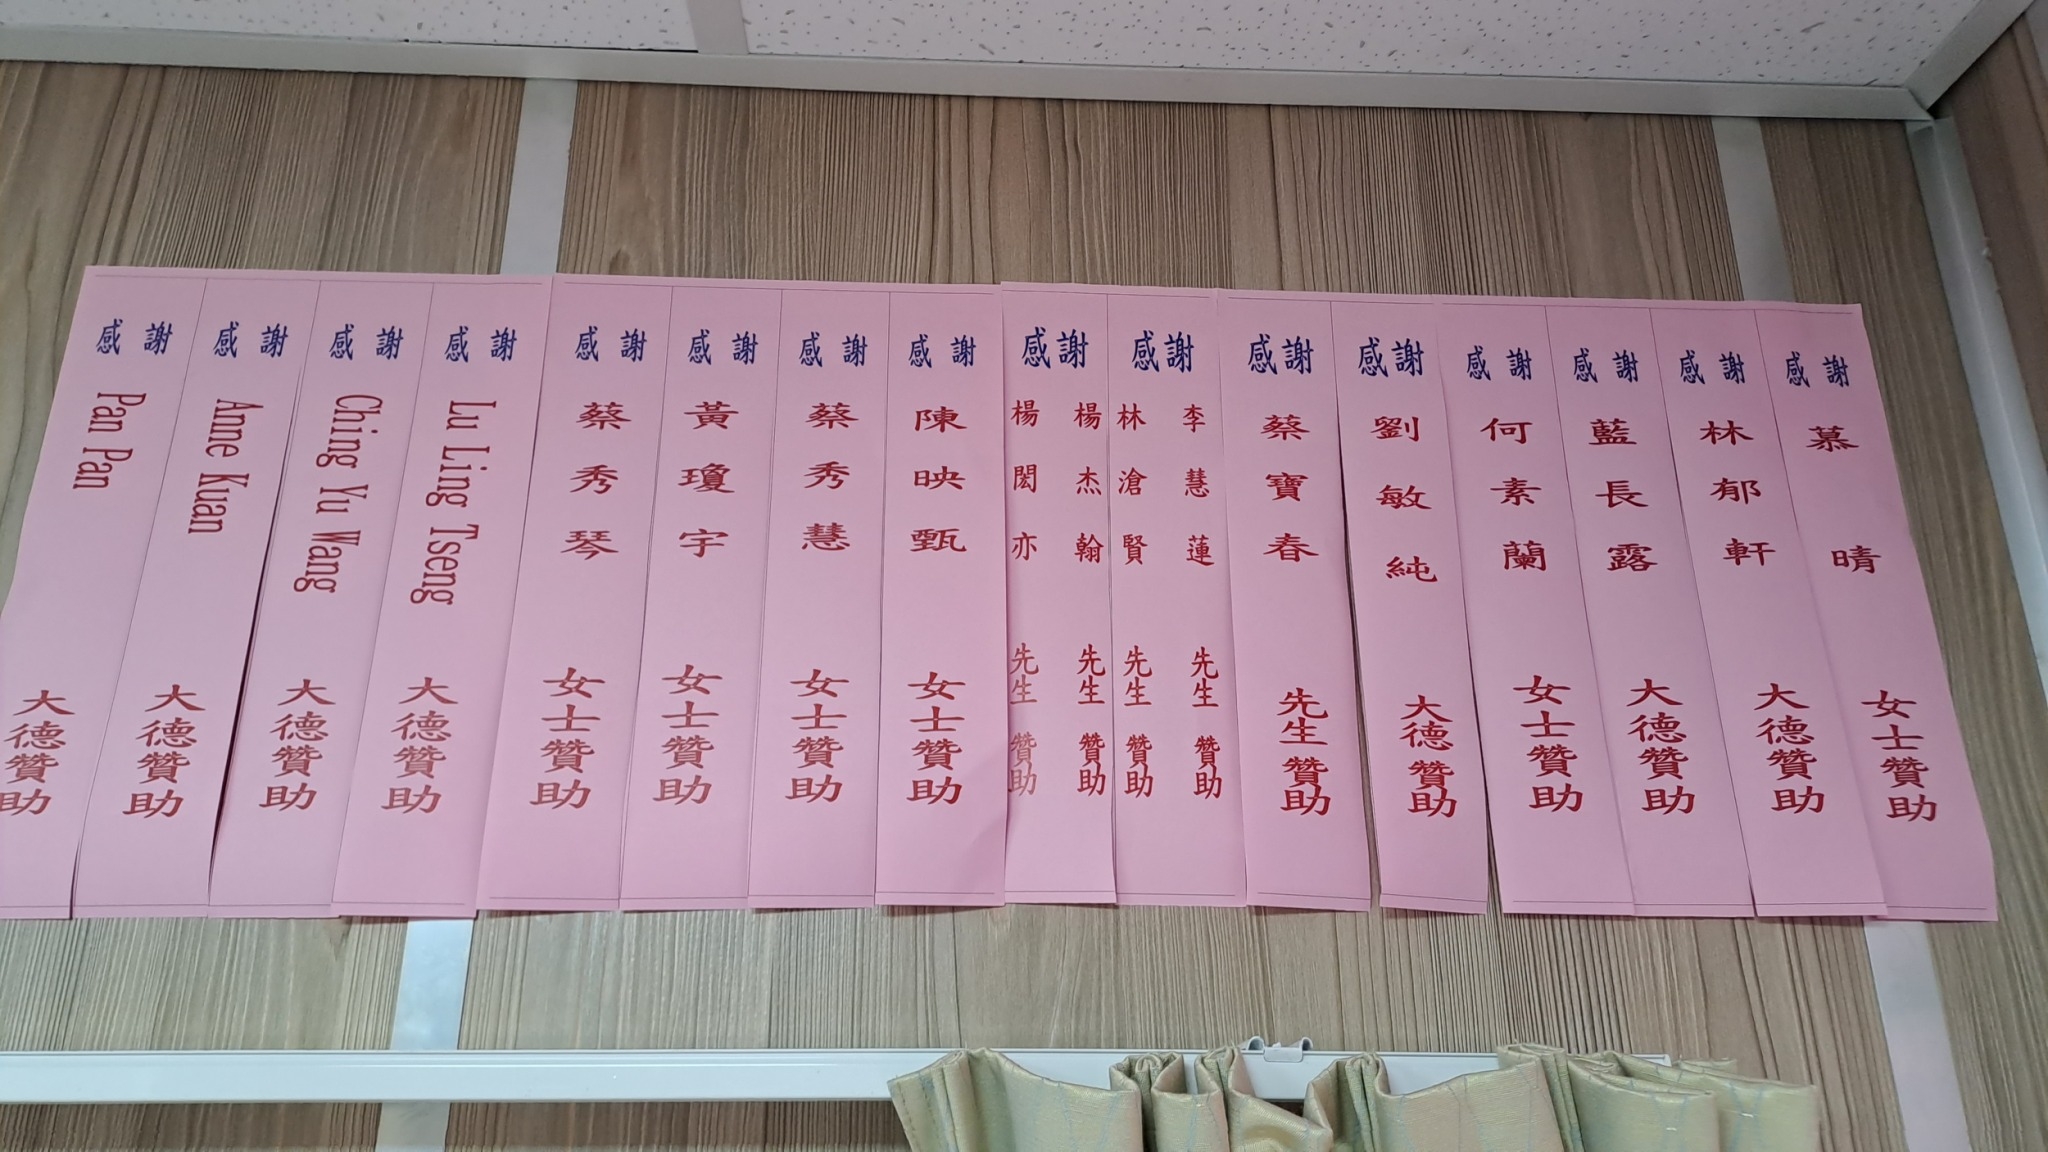 感謝
Pan Pan
大德贊助
感謝
Anne Kuan
大德贊助
感謝
Ching Yu Wang
大德贊助
感謝
Lu Ling Tseng
大德贊助
感謝
蔡秀琴
女士贊助
感謝
黃瓊宇
女士贊助
感謝
蔡秀慧
女士贊助
感謝
陳映甄
女士贊助
感謝
楊閎亦 先生 贊助
楊杰翰 先生 贊助
感謝
林滄賢 先生 贊助
李慧蓮 先生 贊助
感謝
蔡寶春
先生贊助
感謝
劉敏純
大德贊助
感謝
何素蘭
女士贊助
感謝
藍長露
大德贊助
感謝
林郁軒
大德贊助
感謝
慕晴
女士贊助